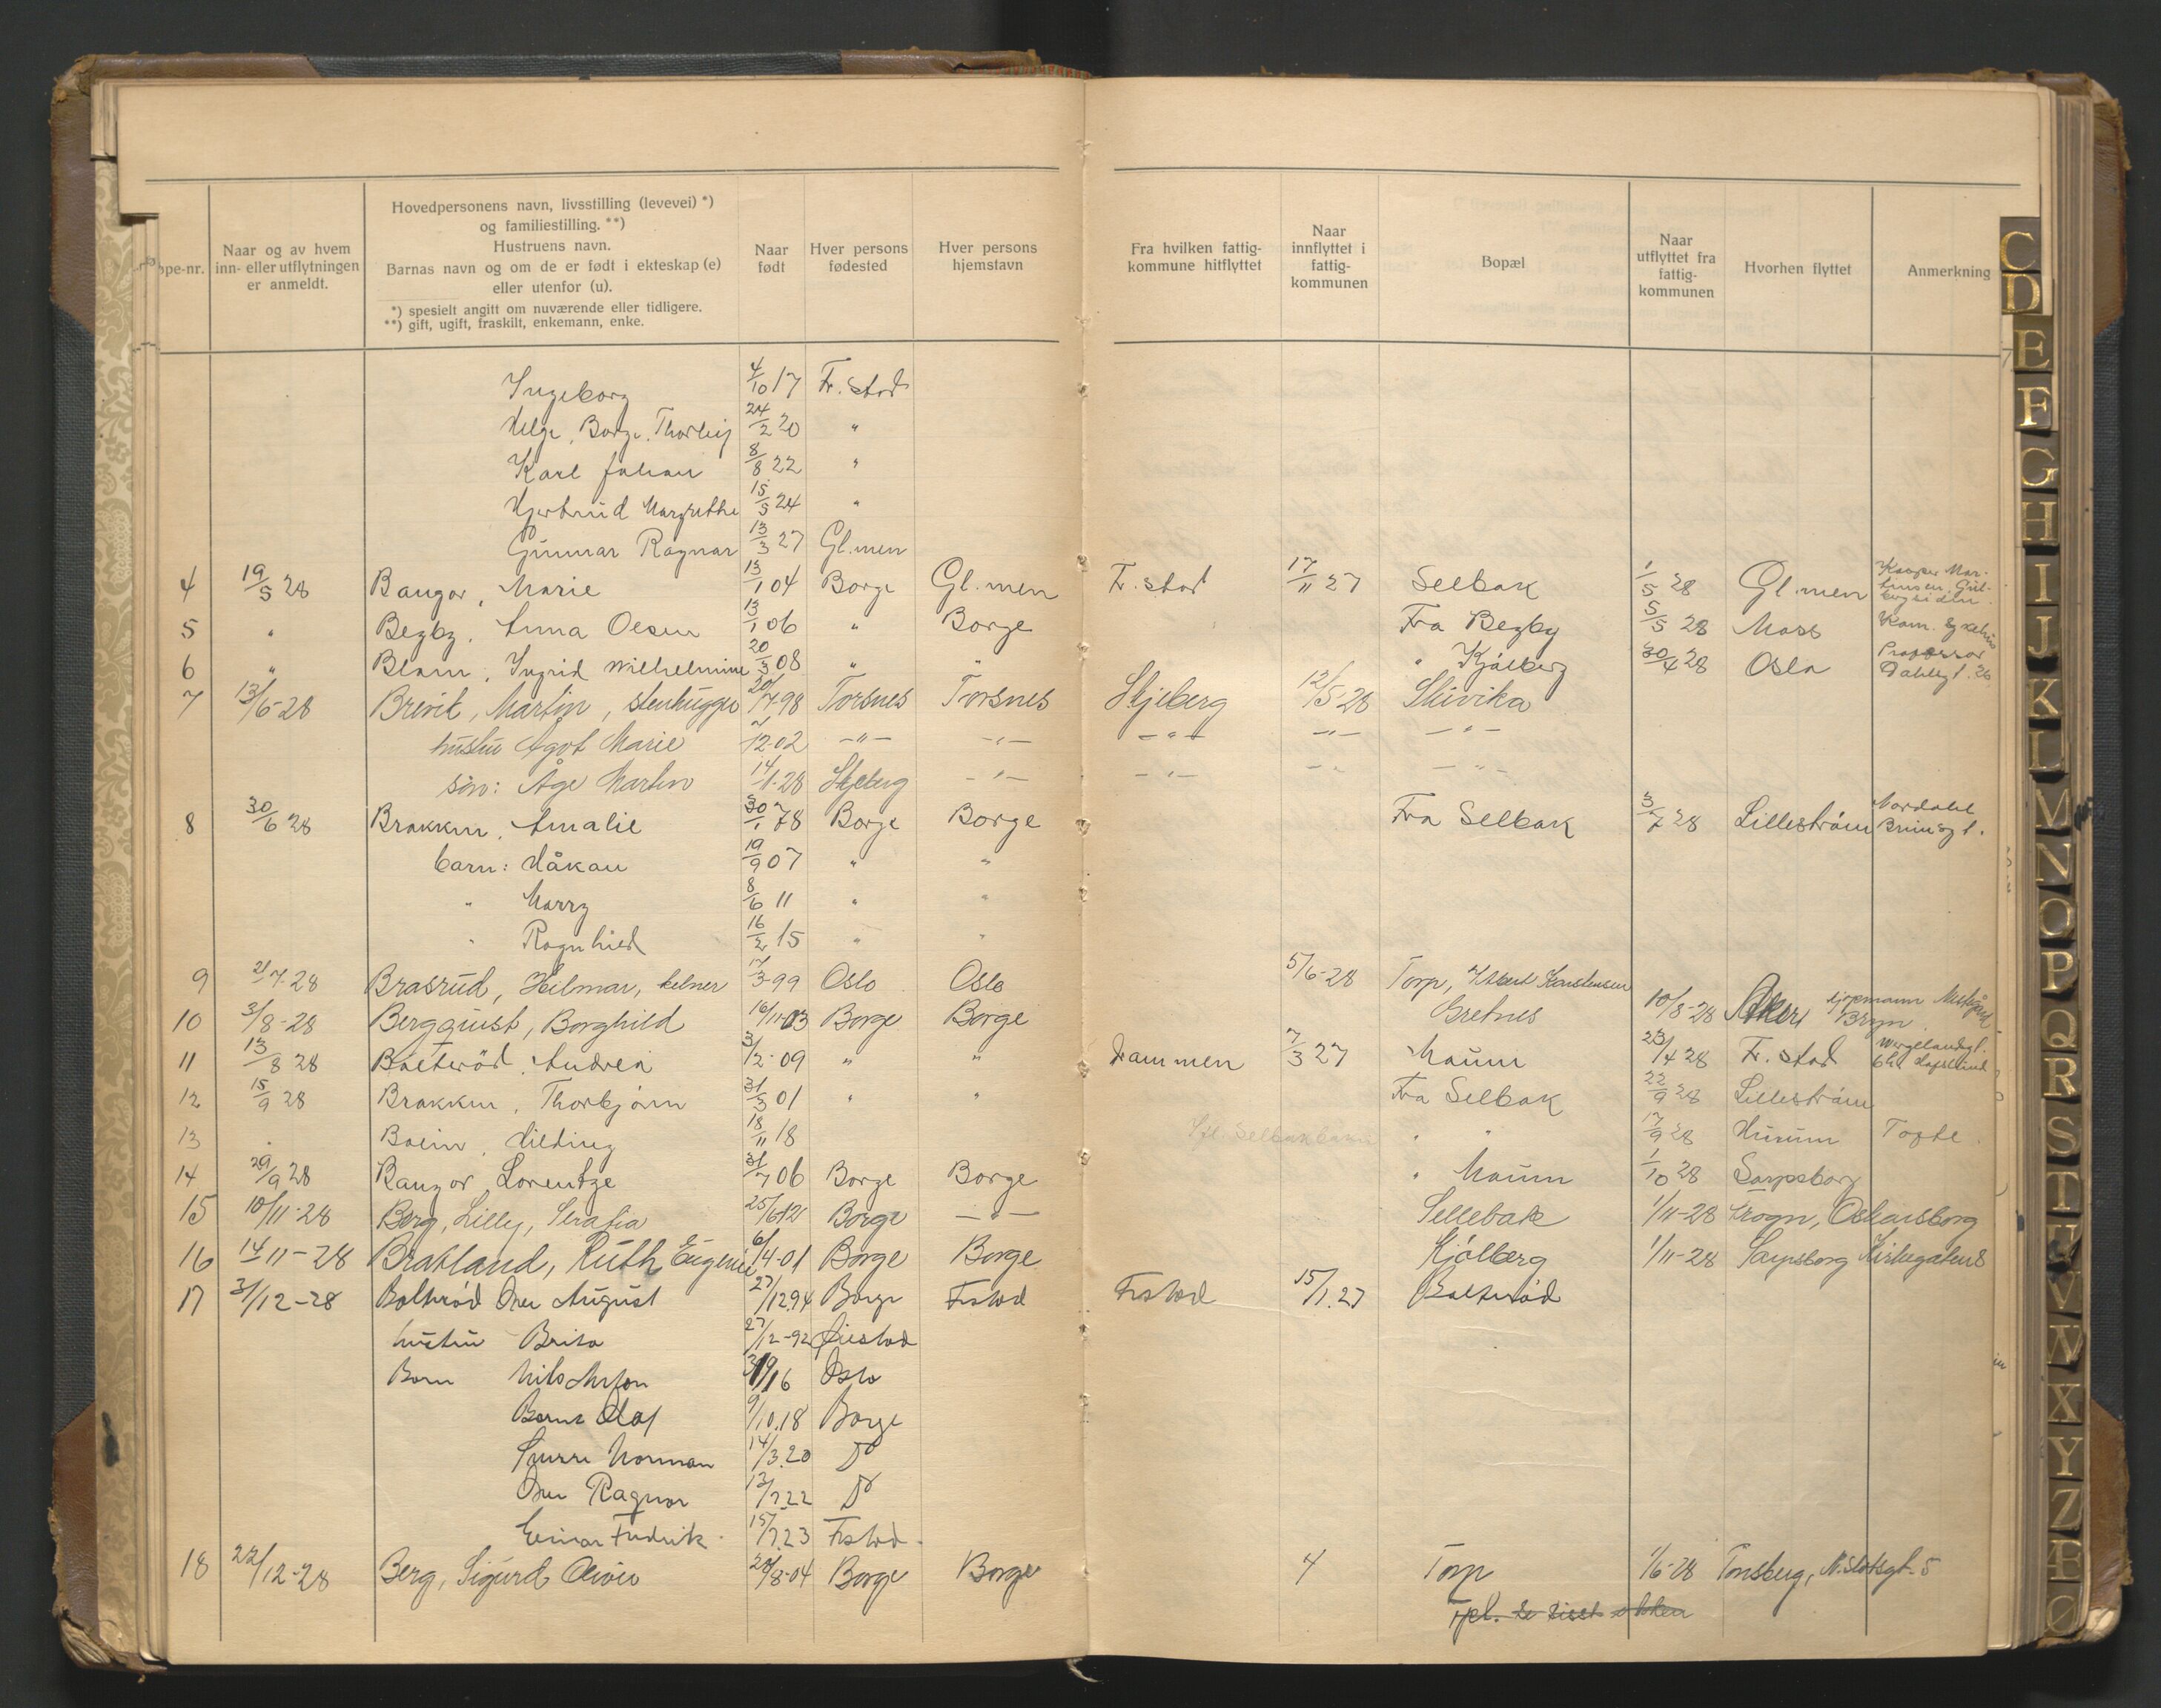 ppe-nr.
Naar og av hvem
inn- eller utflytningen
er anmeldt.
Hovedpersonens navn, livsstilling (levevei) *)
og familiestilling. **)
Hustruens navn.
Barnas navn og om de er født i ekteskap (e)
eller utenfor (u).
*) spesielt angitt om nuværende eller tidligere.
**) gift, ugift, fraskilt, enkemann, enke.
Naar
født
Hver persons
fødested
Hver persons
hjemstavn
Fra hvilken fattig-
kommune hitflyttet
Naar
innflyttet i
fattig-
kommunen
Bopæl
Naar
utflyttet fra
fattig-
kommunen
Hvorhen flyttet
Anmerkning
Ingeborg 4/10 17 Fr. stad
Helge, Borge, Thorleif 24/2 20 "
Karl Johan 8/8 22 "
Hjertrud Margrethe 15/5 24 "
Gunnar Ragnar 13/3 27 Gl.men
4 19/5 28 Bangor, Marie 13/1 04 Borge Gl.men Fr. stad 17/11 27 Selbak 1/5 28 Gl.men
5 " Begby, Anna Olsen 13/1 06 " Borge Fra Begby 5/5 28 Moss Kom. sykehus
6 " Blom, Ingrid Wilhelmine 20/3 08 " " " Kjølberg 30/4 28 Oslo Professor Dahlsgt. 26
7 13/6-28 Brevik, Martin, stenhugger 20/7-98 Torsnes Torsnes Skjeberg 12/5-28 Skivika
hustru Ågot Marie 12-02 -"- -"- -"- -"- -"-
søn: Åge Martin 14/1-28 Skjeberg -"- -"- -"- -"-
8 30/6 28 Brakken, Amalie 30/1 78 Borge Borge Fra Selbak 3/7 28 Lillestrøm Nordahl Brunsgt.
barn: Håkon 19/9 07 " "
" Harry 8/6 11 " "
" Ragnhild 16/2 15 " "
9 2/7-28 Brasrud, Hilmar, kelner 17/3-99 Oslo Oslo 5/6-28 Torp,
10 3/8-28 Bergquist, Borghild 16/11-03 Borge Borge Gretnes 10/8-28 Aker
11 13/8 28 Boltrød, Andrea 3/2-09 " " Drammen 7/3 27 Maum 23/4 28 Fr. stad
12 15/9 28 Brakken, Thorbjørn 31/3 01 " " Fra Selbak 22/9 28 Lillestrøm
13 " Bolin, Hilding 18/11 18 " " 17/9 28 Hurum Tofte.
14 29/9 28 Bangor, Lorentze 31/7 06 Borge Borge " Maum 1/10 28 Sarpsborg
15 10/11-28 Berg, Lilly, Serafia 25/6-12 Borge -"- Sellebak 1/11-28 Frogn, Oskarsborg
16 14/11-28 Bratland, Ruth Eugenie 6/4-01 Borge Borge Kjølberg 1/11-28 Sarpsborg Kirkegaten 8
17 31/12-28 Boltrød Ove August 27/12 94 Borge Frstad Frstad 15/1.27 Boltrød
hustru Brita 27/12-92
Barn Nils 16 Oslo
Olaf 9/10.18 Borge
Norman 14/3.20 Do
Ove Ragnar 13/7 22 Do
Einar Fredrik 15/7.23 Frstad
18 22/12-28 Berg, Sigurd Oliver 28/8-04 Borge Borge 4 Torp 1/6-28 Tønsberg, N. Slotsgt. 5